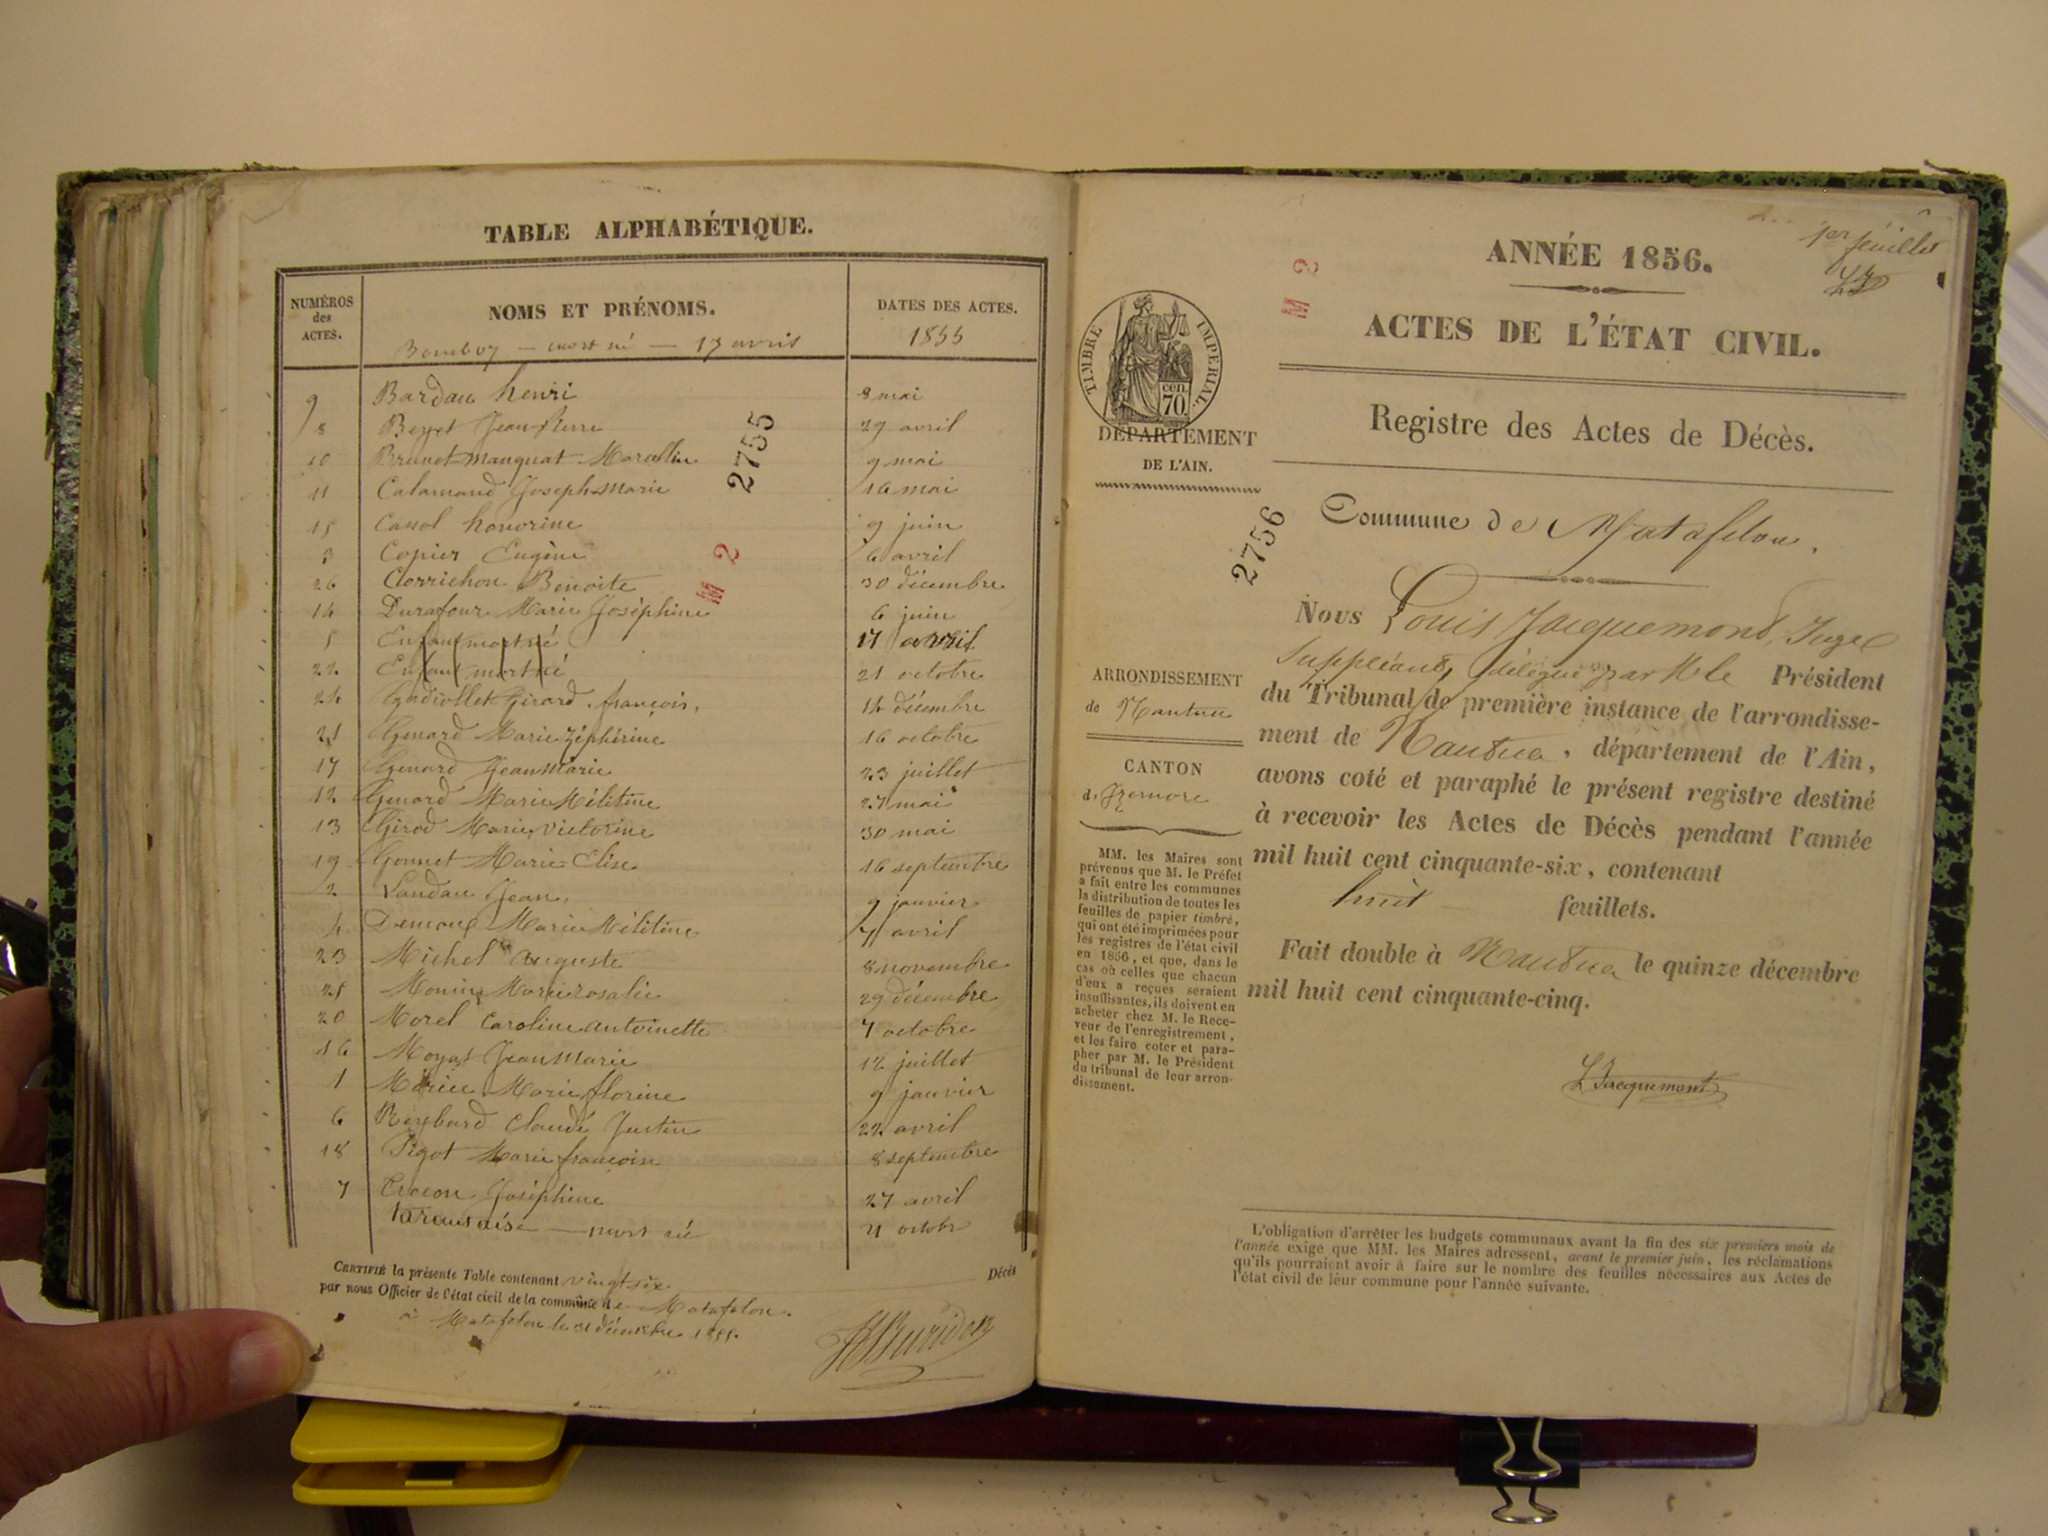 TABLE ALPHABÉTIQUE.
NUMÉROS des ACTES.
NOMS ET PRÉNOMS.
DATES DES ACTES.
mort né — 17 avril
1855
9 Bardau henri 8 mai
8 Jean Pierre 29 avril
10 Brunet manquat Marcellin 9 mai
11 Calamand Joseph Marie 16 mai
15 Cassol honorine 9 juin
3 Copier Eugène 6 avril
26 Corrichon Benoite 30 décembre
14 Durafour Marie Joséphine 6 juin
5 Enfant mort né 17 avril
22 Enfant mort né 21 octobre
24 Girard françois 14 décembre
21 Genard Marie Zéphirine 16 octobre
17 Genard Jean Marie 23 juillet
12 Genard Marie Mélitine 27 mai
13 Girod Marie Victorine 30 mai
19 Gonnet Marie Elise 16 septembre
2 Landau Jean 9 janvier
4 Marie Mélitine 7 avril
23 Michel Auguste 8 novembre
25 Monin Marie rosalie 29 décembre
20 Morel Caroline antoinette 7 octobre
16 Jean Marie 12 juillet
1 Marie florine 9 janvier
6 Claude Justin 22 avril
18 Pigot Marie françoise 8 septembre
7 Joséphine 27 avril
tarantaise — mort né 21 octobre
2755
M 2
CERTIFIÉ la présente Table contenant vingt six Décès
par nous Officier de l'état civil de la commune de Matafelon.
à Matafelon le 31 décembre 1855.
1er feuillet
ANNÉE 1856.
M 2
ACTES DE L'ÉTAT CIVIL.
TIMBRE IMPERIAL.
cen. 70
Registre des Actes de Décès.
DÉPARTEMENT
DE L'AIN.
2756
Commune de Matafelon.
Nous Louis Jacquemond, Juge
Suppléant, délégué par M. le Président
du Tribunal de première instance de l'arrondisse-
ment de Nantua, département de l'Ain,
avons coté et paraphé le présent registre destiné
à recevoir les Actes de Décès pendant l'année
mil huit cent cinquante-six, contenant
huit feuillets.
Fait double à Nantua le quinze décembre
mil huit cent cinquante-cinq.
L Jacquemond
ARRONDISSEMENT
de Nantua
CANTON
d'Izernore
MM. les Maires sont
prévenus que M. le Préfet
a fait entre les communes
la distribution de toutes les
feuilles de papier timbré,
qui ont été imprimées pour
les registres de l'état civil
en 1856, et que, dans le
cas où celles que chacun
d'eux a reçues seraient
insuffisantes, ils doivent en
acheter chez M. le Rece-
veur de l'enregistrement,
et les faire coter et para-
pher par M. le Président
du tribunal de leur arron-
dissement.
L'obligation d'arrêter les budgets communaux avant la fin des six premiers mois de
l'année exige que MM. les Maires adressent, avant le premier juin, les réclamations
qu'ils pourraient avoir à faire sur le nombre des feuilles nécessaires aux Actes de
l'état civil de leur commune pour l'année suivante.